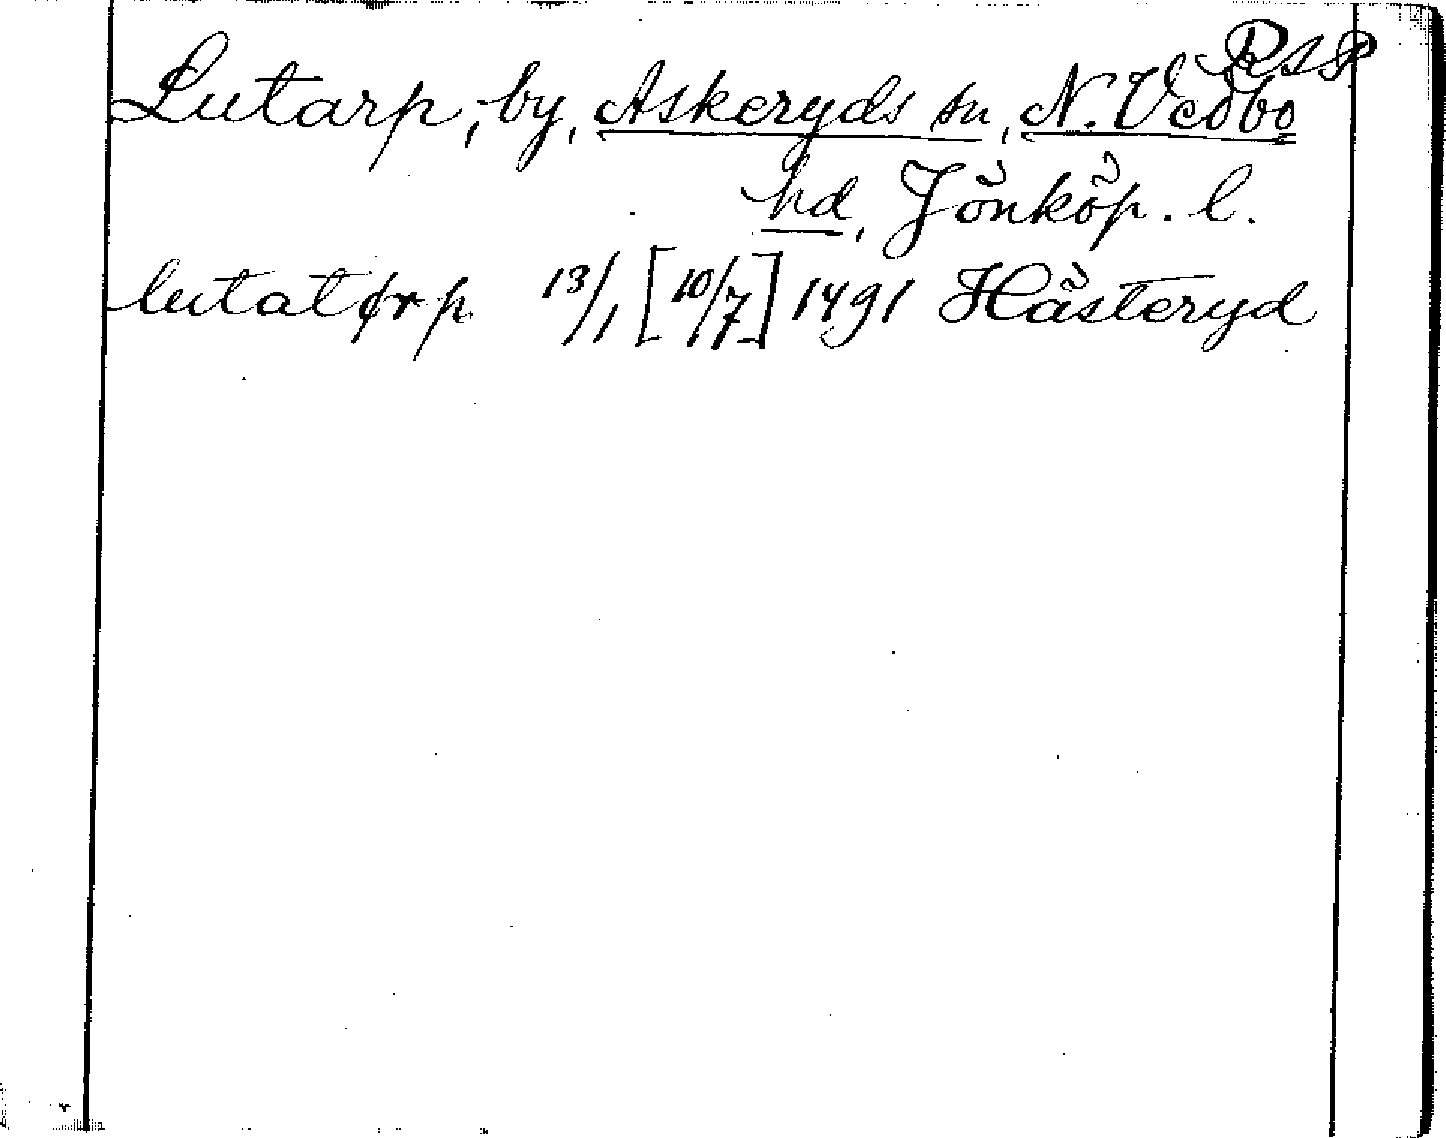 RAP
Lutarp, by, Askeryds sn, N. Vedbo
hd, Jönköp. l.
lutatørp 13/1 [10/7] 1491 Hästeryd